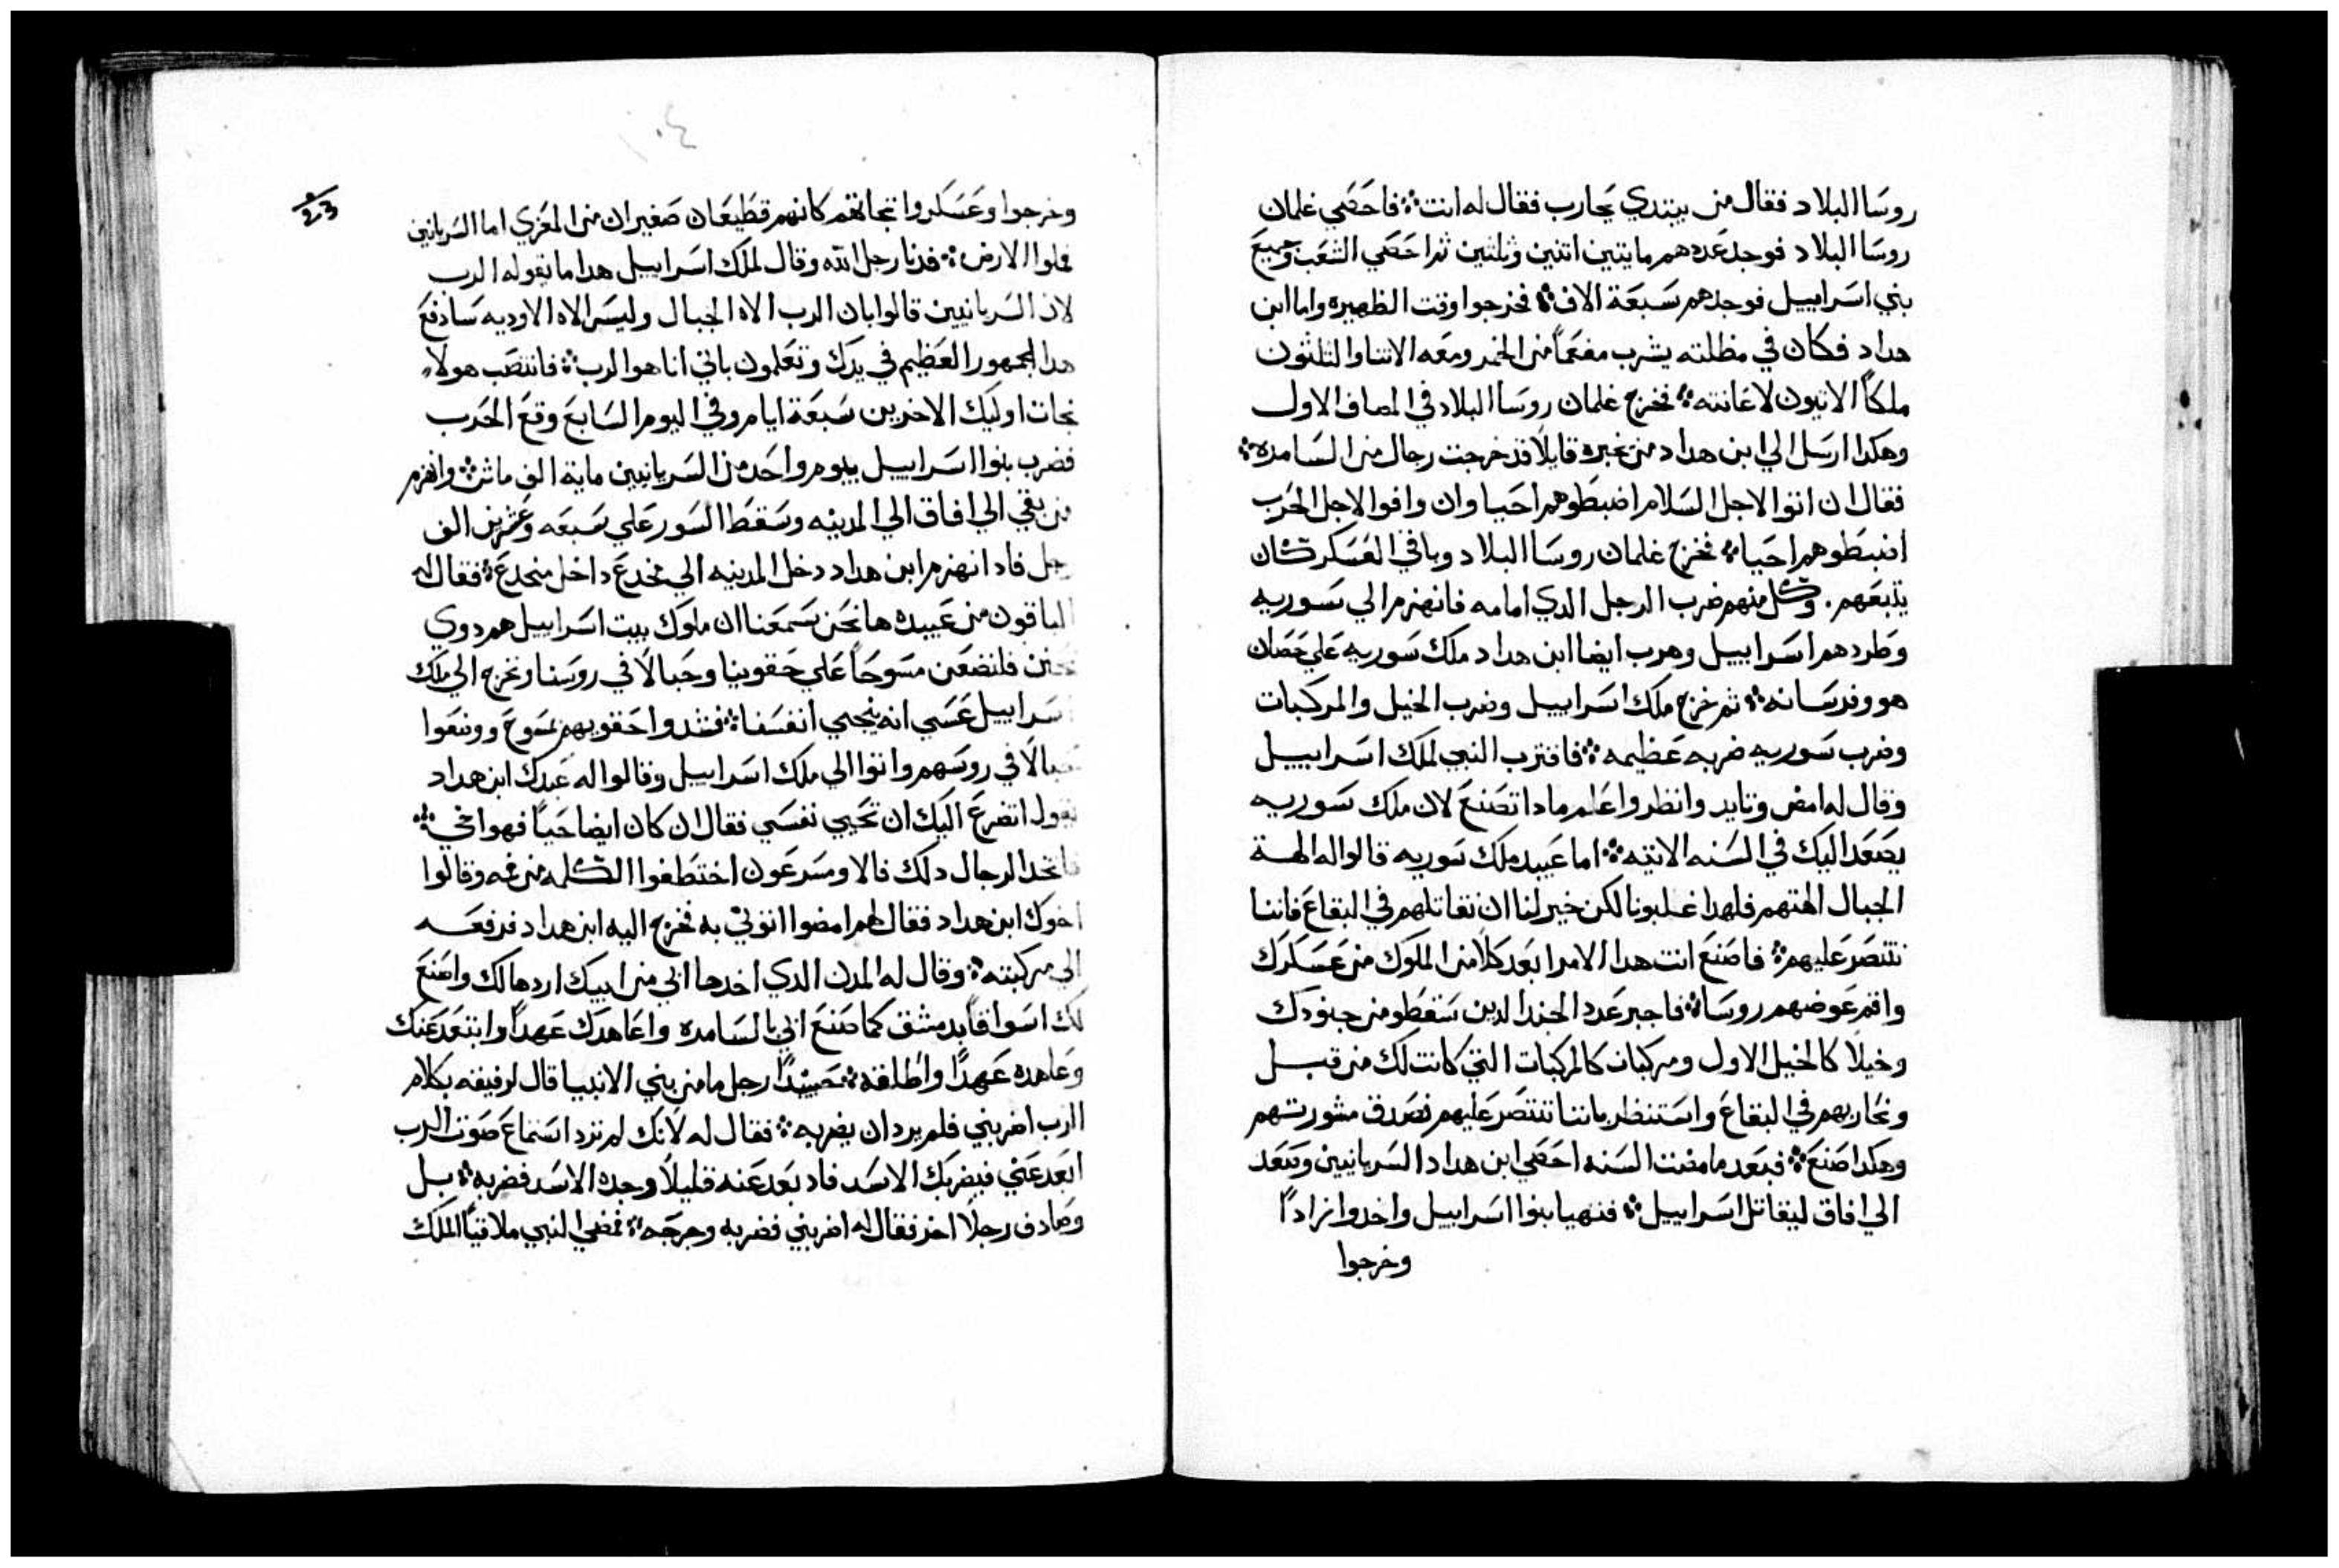 روسا البلاد فقال من يبتدي يحارب فقال له انت؞ فاحصي غلمان
روسا البلاد فوجد عددهم مايتين اتنين وثلثين ثم احصي الشعب وجميع
بني اسراييل فوجدهم سبعة الاف؞ فخرجوا وقت الظهيره واما ابن
هداد فكان في مظلته يشرب مفعماً من الخمر ومعه الاتنا والثلثون
ملكاً الاتيون لاعانته؞ فخرج غلمان روسا البلاد في المصاف الاول
وهكدا ارسل الي ابن هداد من يخبره قايلاً قد خرجت رجال من السامره؞
فقال ان اتوا لاجل السلام اضبطوهم احيا وان وافوا لاجل الحرب
اضبطوهم احيا؞ فخرج غلمان روسا البلاد وباقي العسكر كان
يتبعهم. وكل منهم ضرب الرجل الدي امامه فانهزم الي سوريه
وطردهم اسراييل وهرب ايضا ابن هداد ملك سوريه علي حصان
هو وفرسانه؞ ثم خرج ملك اسراييل وضرب الخيل والمركبات
وضرب سوريه ضربه عظيمه؞ فاقترب النبي لملك اسراييل
وقال له امض وتايد وانظر واعلم مادا تصنع لان ملك سوريه
يصعد اليك في السنه الاتيه؞ اما عبيد ملك سوريه قالوا له الهة
الجبال الهتهم فلهدا غلبونا لكن خير لنا ان نقاتلهم في البقاع فاننا
ننتصر عليهم؞ فاصنع انت هدا الامر ابعد كلاً من الملوك من عسكرك
واقم عوضهم روسا؞ فاجبر عدد الجند الدين سقطو من جنودك
وخيلاً كالخيل الاول ومركبات كالمركبات التي كانت لك من قبل
ونحاربهم في البقاع واستنظر باننا ننتصر عليهم فصدق مشورتهم
وهكدا صنع؞ فبعد ما مضت السنه احصي ابن هداد السريانيين وصعد
الي افاق ليقاتل اسراييل؞ فتهيا بنوا اسراييل واخدوا زاداً
وخرجوا
١٠٤
وخرجوا وعسكروا تجاههم كانهم قطيعان صغيران من المعزي اما السريانين
فملوا الارض؞ فدنا رجل الله وقال لملك اسراييل هدا ما يقوله الرب
لان السريانيين قالوا بان الرب الاه الجبال وليس الاه الاوديه سادفع
هدا الجمهور العظيم في يدك وتعلمون باني انا هو الرب؞ فانتصب هولاء
تجات اوليك الاخرين سبعة ايام وفي اليوم السابع وقع الحرب
فضرب بنوا اسراييل بيوم واحد من السريانيين ماية الف ماش؞ وانهزم
من بقي الي افاق الي المدينه وسقط السور علي سبعه وعشرين الف
رجل فاد انهزم ابن هداد دخل المدينه الي مخدع داخل مخدع؞ فقال له
الباقون من عبيده ها نحن سمعنا ان ملوك بيت اسراييل هم دوي
تحنن فلنضعن مسوحاً علي حقوينا وحبالاً في روسنا ونخرج الي ملك
اسراييل عسي انه ينجي انفسنا؞ فشدوا حقويهم بمسوح ووضعوا
حبالاً في روسهم واتوا الي ملك اسراييل وقالوا له عبدك ابن هداد
يقول اتضرع اليك ان تحيي نفسي فقال ان كان ايضا حياً فهو اخي؞
فاتخد الرجال دلك فالا ومسرعون اختطفوا الكلمه من فمه وقالوا
اخوك ابن هداد فقال لهم امضوا اتوني به فخرج اليه ابن هداد فرفعه
الي مركبته؞ وقال له المدن الدي اخدها ابي من ابيك اردها لك واصنع
لك اسواقاً بدمشق كما صنع ابي بالسامره واعاهدك عهداً وابتعد عنك
وعاهده عهداً واطلقه؞ حينيدٍ رجل ما من بني الانبيا قال لرفيقه بكلام
الرب اضربني فلم يرد ان يضربه؞ فقال له لانك لم ترد استماع صوت الرب
ابعد عني فيضربك الاسد فاد بعد عنه قليلاً وجده الاسد فضربه؞ بل
وصادف رجلاً اخر فقال له اضربني فضربه وجرحه؞ فمضي النبي ملاقياً الملك